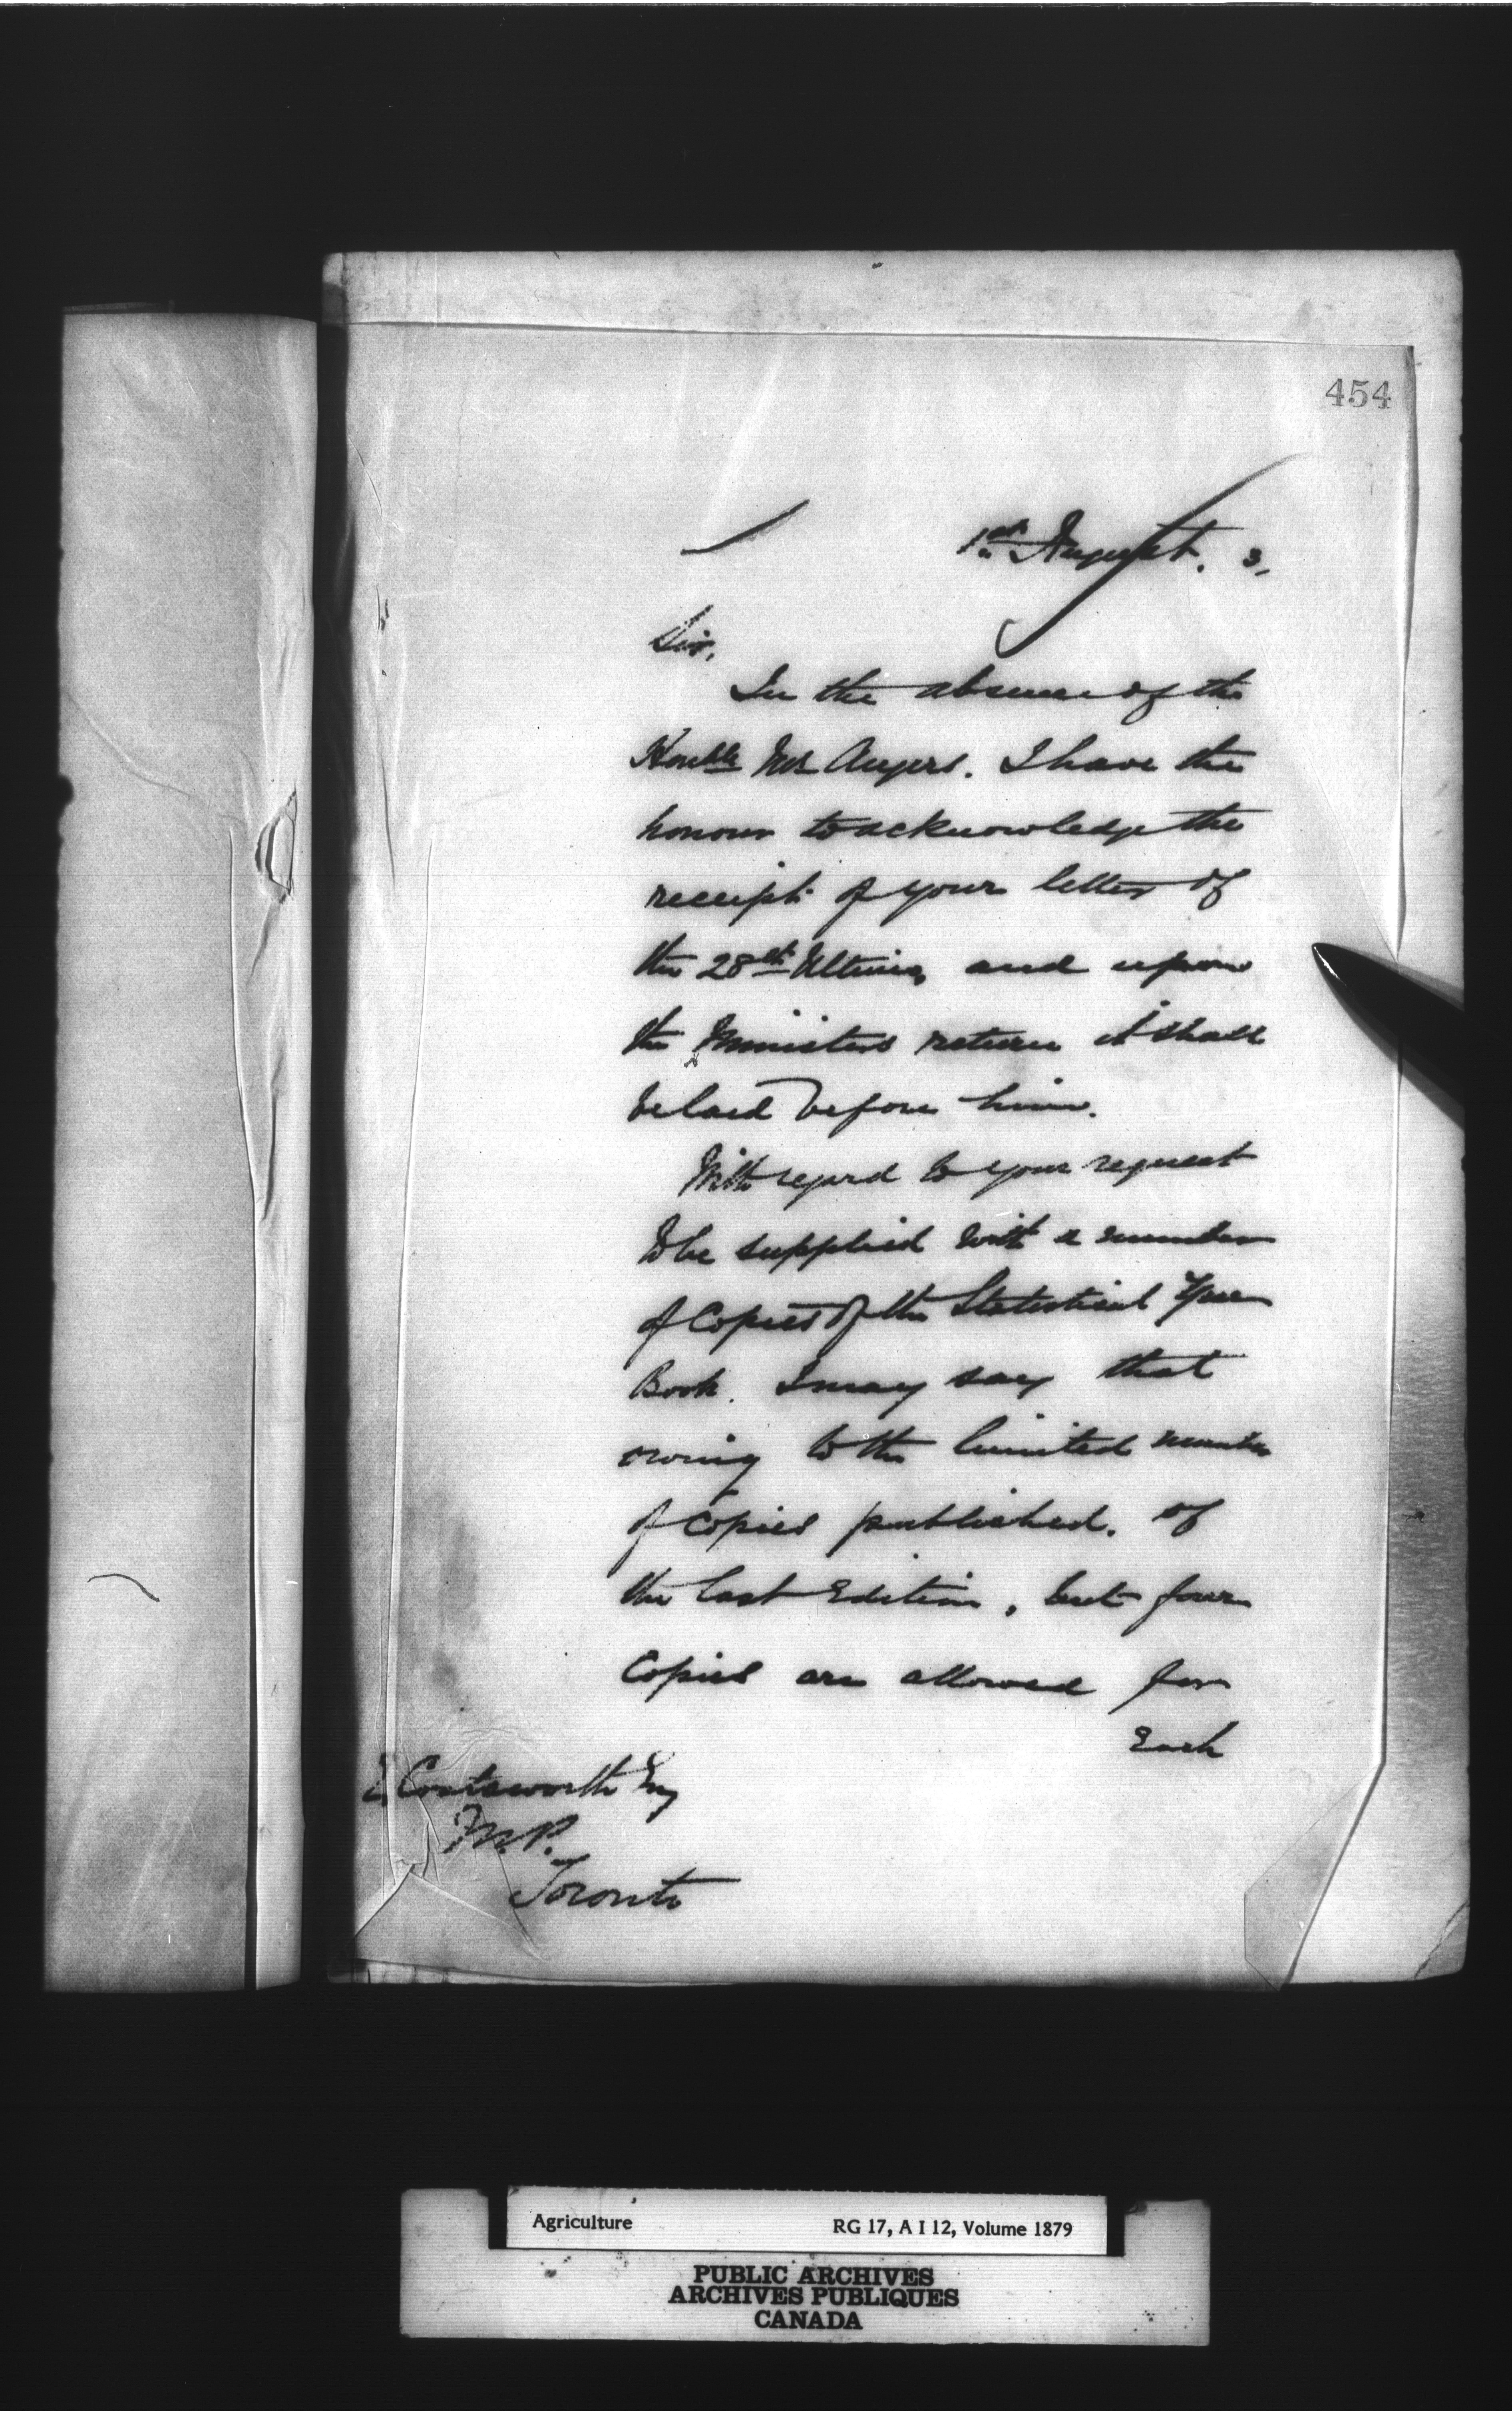 454
1st August. 3,
Sir,
In the absence of the
Honble Mr Angers. I have the
honour to acknowledge the
receipt of your letter of
the 28th Ultimo, and upon
the Ministers return it shall
be laid before him.
With regard to your request
to be supplied with a number
of Copies of the Statistical Year
Book. I may say that
owing to the limited number
of Copies published. of
the last Edition, but four
Copies are allowed for
Each
E Coatsworth Esq
M.P.
Toronto
Agriculture RG 17, A I 12, Volume 1879
PUBLIC ARCHIVES
ARCHIVES PUBLIQUES
CANADA